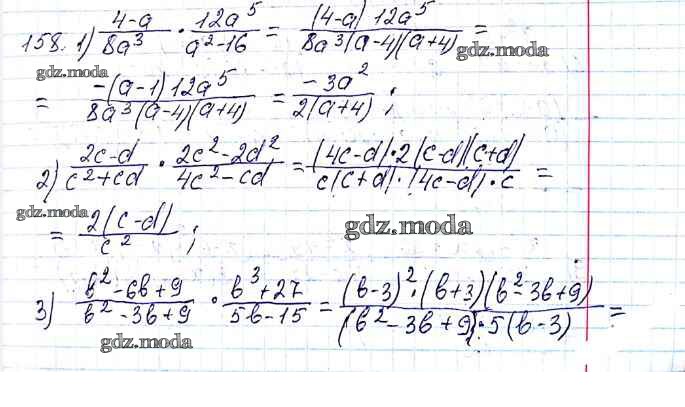 158. 1) (4-a)/(8a³) · (12a⁵)/(a²-16) = ((4-a) 12a⁵)/(8a³(a-4)(a+4)) =
gdz.moda gdz.moda
= (-(a-1) 12a⁵)/(8a³(a-4)(a+4)) = (-3a²)/(2(a+4)) ;
2) (2c-d)/(c²+cd) · (2c²-2d²)/(4c²-cd) = ((4c-d)·2(c-d)(c+d))/(c(c+d)·(4c-d)·c) =
gdz.moda gdz.moda
= (2(c-d))/(c²) ;
3) (b²-6b+9)/(b²-3b+9) · (b³+27)/(5b-15) = ((b-3)²·(b+3)(b²-3b+9))/((b²-3b+9)·5(b-3)) =
gdz.moda